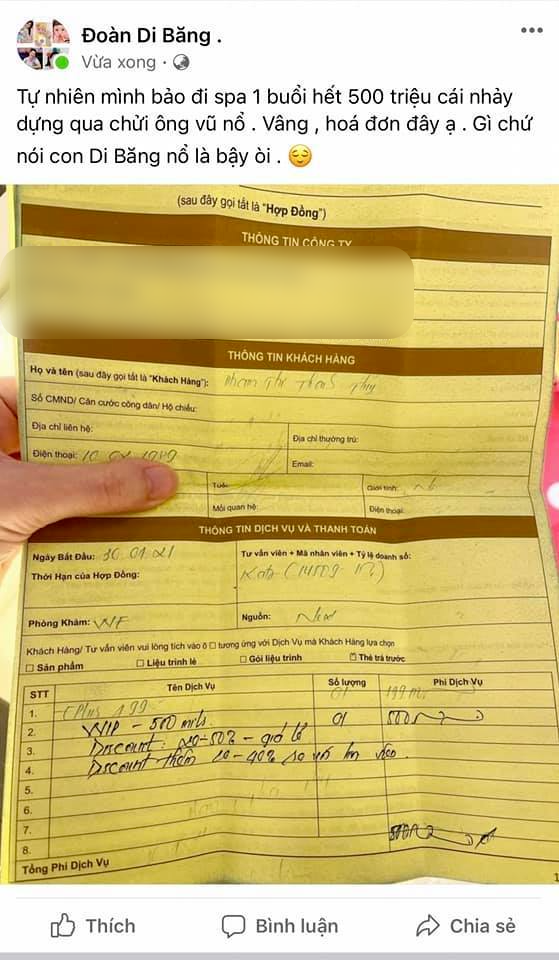 Đoàn Di Băng .
Vừa xong ·
Tự nhiên mình bảo đi spa 1 buổi hết 500 triệu cái nhảy
dựng qua chửi ông vũ nổ . Vâng , hoá đơn đây ạ . Gì chứ
nói con Di Băng nổ là bậy òi . 😌
(sau đây gọi tắt là "Hợp Đồng")
THÔNG TIN CÔNG TY
THÔNG TIN KHÁCH HÀNG
Họ và tên (sau đây gọi tắt là "Khách Hàng"):
Số CMND/ Căn cước công dân/ Hộ chiếu:
Địa chỉ liên hệ:
Địa chỉ thường trú:
Điện thoại:
Email:
Tuổi:
Giới tính:
Mối quan hệ:
Điện thoại:
THÔNG TIN DỊCH VỤ VÀ THANH TOÁN
Ngày Bắt Đầu: 30.01.21
Tư vấn viên + Mã nhân viên + Tỷ lệ doanh số:
Thời Hạn của Hợp Đồng:
Phòng Khám:
Nguồn: New
Khách Hàng/ Tư vấn viên vui lòng tích vào ô □ tương ứng với Dịch Vụ mà Khách Hàng lựa chọn
□ Sản phẩm □ Liệu trình lẻ □ Gói liệu trình □ Thẻ trả trước
STT Tên Dịch Vụ Số lượng Phí Dịch Vụ
1. 01
2. VVIP - 500 01
3. Discount: 20-50% - giá lẻ
4. Discount thêm
5.
6.
7.
8.
Tổng Phí Dịch Vụ
1
Thích Bình luận Chia sẻ